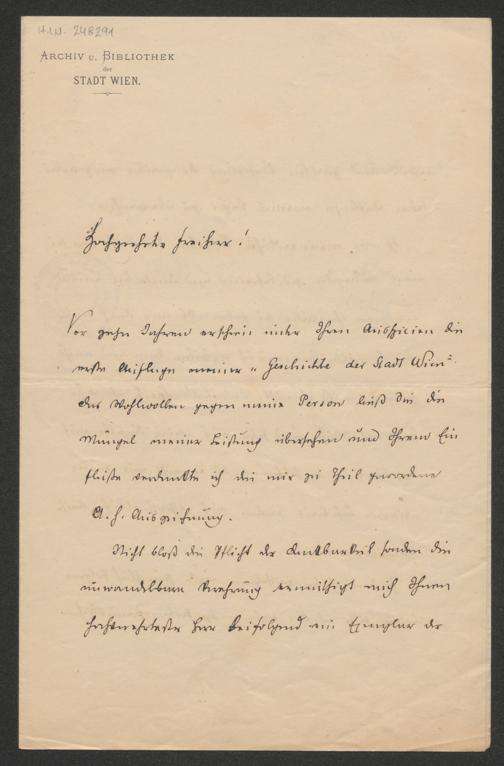 H.I.N. 248291
ARCHIV u. BIBLIOTHEK
der
STADT WIEN.
Hochgeehrter Freiherr!
Vor zehn Jahren erschien unter Ihren Auspicien die
erste Auflage meiner „Geschichte der Stadt Wien".
Das Wohlwollen gegen meine Person ließ Sie die
Mängel meiner Leistung übersehen und Ihrem Ein
fluße verdankte ich die mir zu Theil gewordene
A. h. Auszeichnung.
Nicht bloß die Pflicht der Dankbarkeit sondern die
unwandelbare Verehrung ermuthigt mich Ihnen
hochverehrtester Herr beifolgend ein Exemplar der